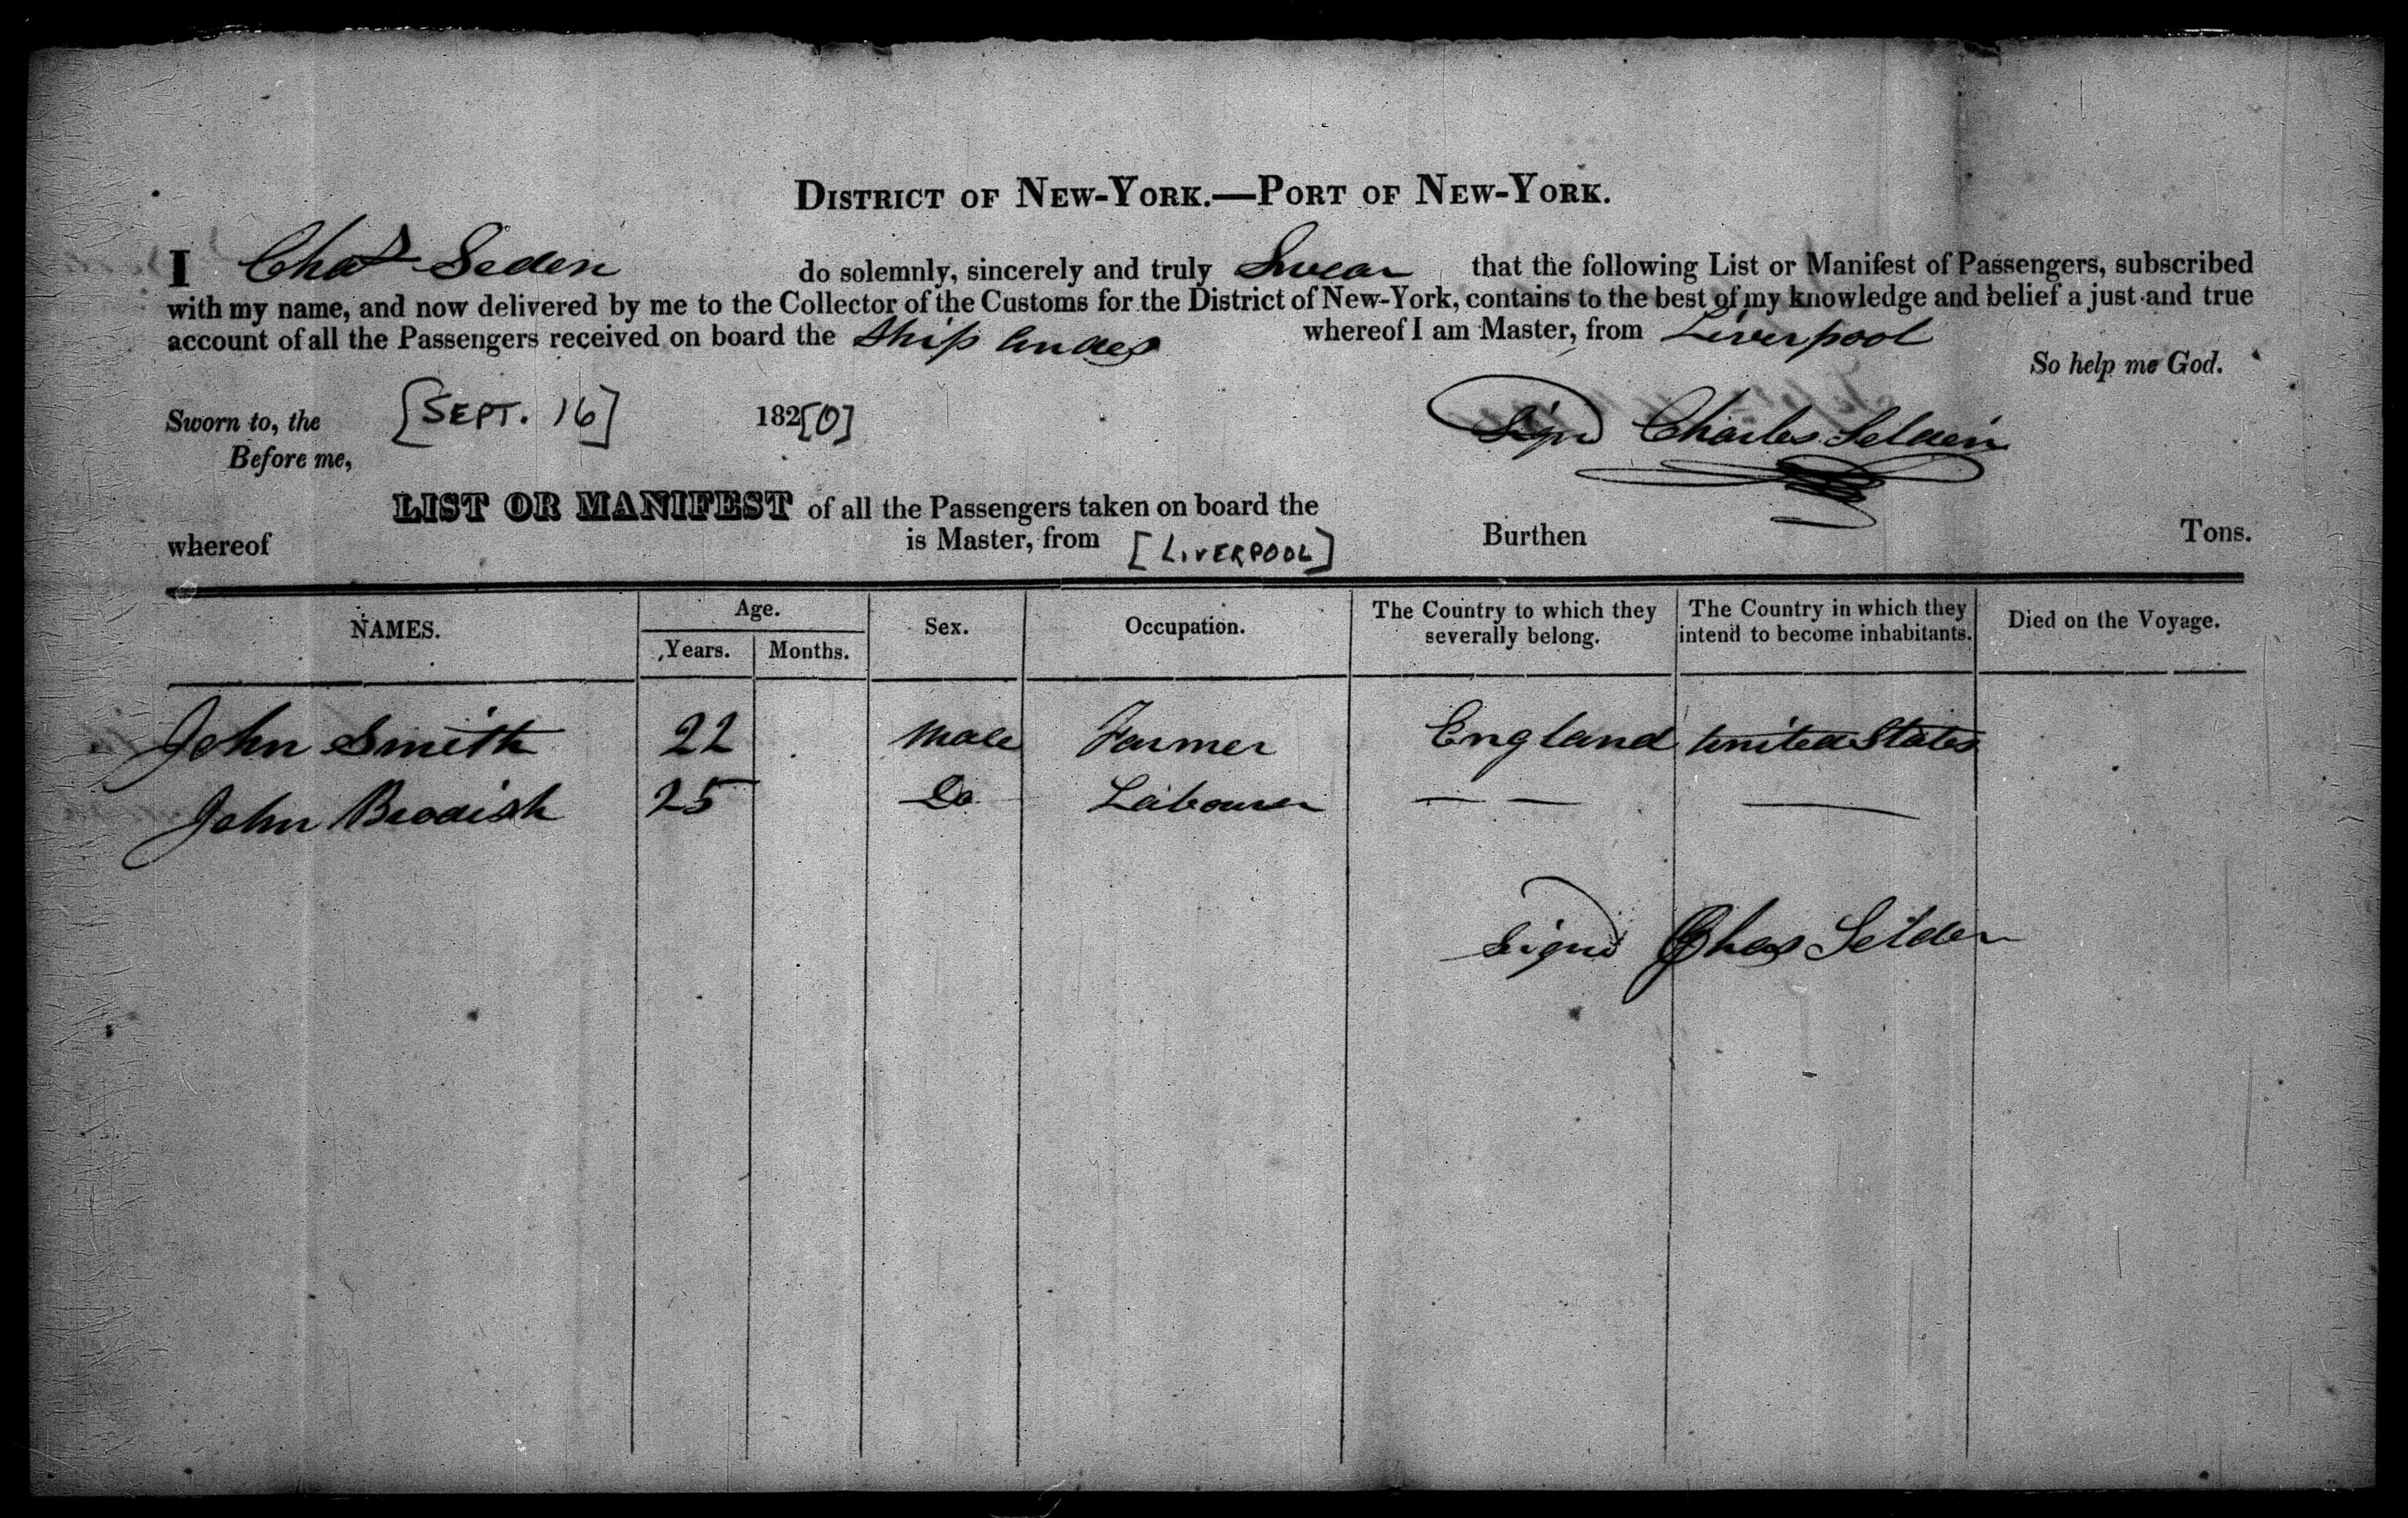 DISTRICT OF NEW-YORK.—PORT OF NEW-YORK.
I Chas Seden do solemnly, sincerely and truly Swear that the following List or Manifest of Passengers, subscribed
with my name, and now delivered by me to the Collector of the Customs for the District of New-York, contains to the best of my knowledge and belief a just and true
account of all the Passengers received on board the Ship Andes whereof I am Master, from Liverpool
So help me God.
Sworn to, the [SEPT. 16] 182[0]
Before me,
Signd Charles Selden
LIST OR MANIFEST of all the Passengers taken on board the
whereof is Master, from [LIVERPOOL] Burthen Tons.
NAMES. Age. Sex. Occupation. The Country to which they severally belong. The Country in which they intend to become inhabitants. Died on the Voyage.
Years. Months.
John Smith 22 Male Farmer England United States
John Brodish 25 Do Labourer — — —
Signd Chas Selden